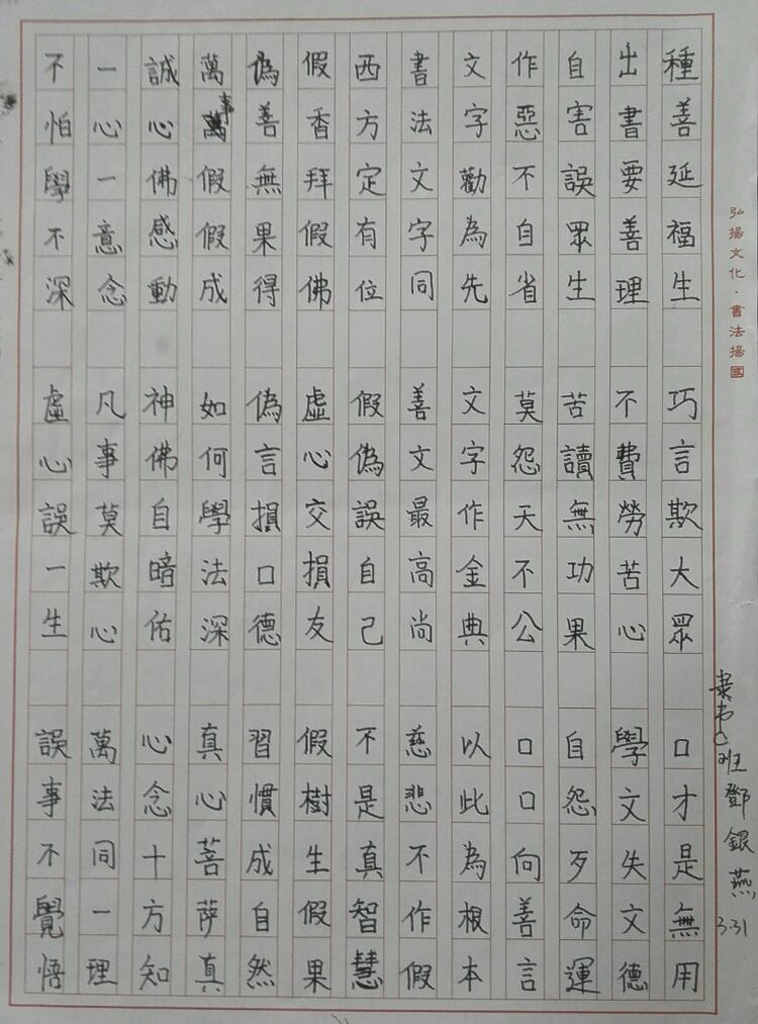 弘揚文化·書法揚國
隸書C班 鄧銀燕 3.31
種善延福生 巧言欺大眾 口才是無用
出書要善理 不費勞苦心 學文失文德
自害誤眾生 苦讀無功果 自怨歹命運
作惡不自省 莫怨天不公 口口向善言
文字勸為先 文字作金典 以此為根本
書法文字同 善文最高尚 慈悲不作假
西方定有位 假偽誤自己 不是真智慧
假香拜假佛 虛心交損友 假樹生假果
偽善無果得 偽言損口德 習慣成自然
萬事假假成 如何學法深 真心菩萨真
誠心佛感動 神佛自暗佑 心念十方知
一心一意念 凡事莫欺心 萬法同一理
不怕學不深 虛心誤一生 誤事不覺悟